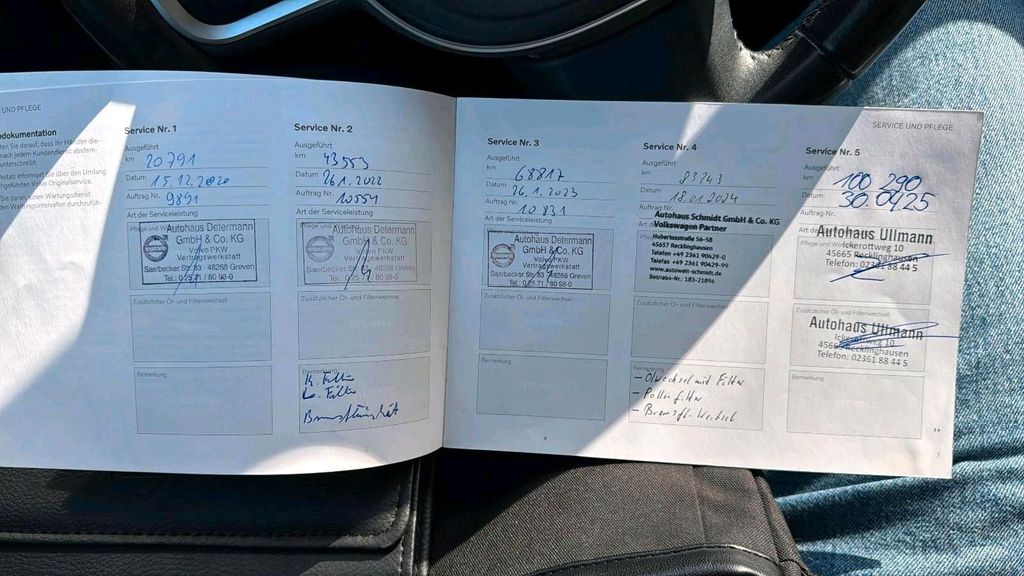 UND PFLEGE
edokumentation
ten Sie darauf, dass Ihr Händler die-
nach jedem Kundendienst abstem-
unterschreibt.
kstatt informiert Sie über den Umfang
chgeführten Volvo Originalservice.
Sie daran, einen Wartungsdienst
den Wartungsintervallen durchzufüh-
Service Nr. 1
Ausgeführt
km 20791
Datum 15.12.2020
Auftrag Nr. 9891
Art der Serviceleistung
Pflege und
Autohaus Determann
GmbH & Co. KG
Volvo PKW
Vertragswerkstatt
Saerbecker Str. 83 · 48268 Greven
Tel.: 0 25 71 / 80 98-0
Zusätzlicher Öl- und Filterwechsel
Bemerkung
Service Nr. 2
Ausgeführt
km 43553
Datum 26.1.2022
Auftrag Nr. 10551
Art der Serviceleistung
Pflege und
Autohaus Determann
GmbH & Co. KG
Volvo PKW
Vertragswerkstatt
Saerbecker Str. 83 · 48268 Greven
Tel.: 0 25 71 / 80 98-0
Zusätzlicher Öl- und Filterwechsel
Bemerkung
K. Filter
L. Filter
Bremsflüssigkeit
Service Nr. 3
Ausgeführt
km 68817
Datum 26.1.2023
Auftrag Nr. 10831
Art der Serviceleistung
Autohaus Determann
GmbH & Co. KG
Volvo PKW
Vertragswerkstatt
Saerbecker Str. 83 · 48268 Greven
Tel.: 0 25 71 / 80 98-0
Zusätzlicher Öl- und Filterwechsel
Bemerkung
Service Nr. 4
Ausgeführt
km 83743
Datum 18.01.2024
Auftrag Nr.
Autohaus Schmidt GmbH & Co. KG
Volkswagen Partner
Hubertusstraße 56-58
45657 Recklinghausen
Telefon +49 2361 90429-0
Telefax +49 2361 90429-99
www.autowelt-schmidt.de
Betriebs-Nr.: 183-21896
Zusätzlicher Öl- und Filterwechsel
Bemerkung
- Ölwechsel mit Filter
- Pollenfilter
- Bremsfl. Wechsel
SERVICE UND PFLEGE
Service Nr. 5
Ausgeführt
km 100 290
Datum 30.04.25
Auftrag Nr.
Autohaus Ullmann
Ickerottweg 10
45665 Recklinghausen
Telefon: 02361 88 44 5
Zusätzlicher Öl- und Filterwechsel
Autohaus Ullmann
Ickerottweg 10
45665 Recklinghausen
Telefon: 02361 88 44 5
Bemerkung
7